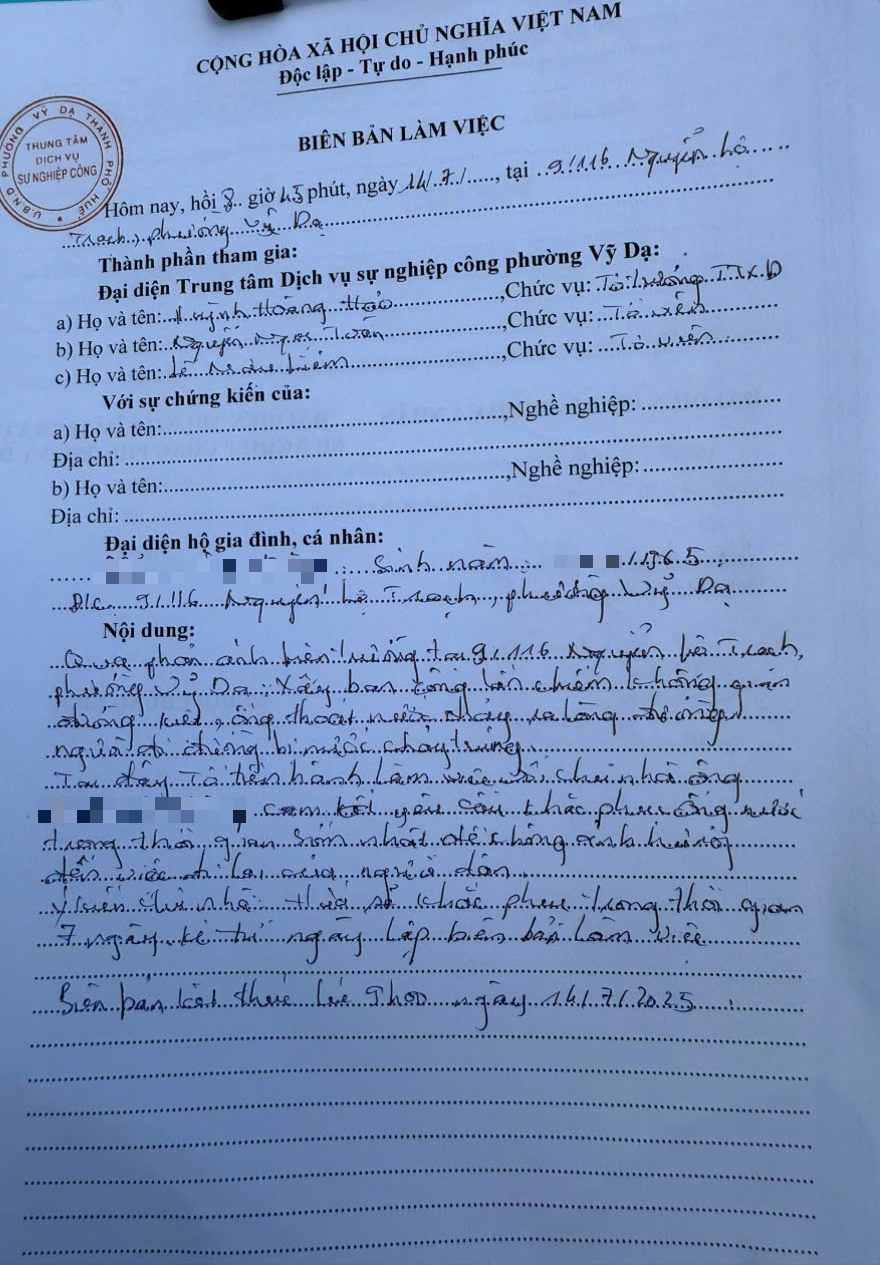 CỘNG HÒA XÃ HỘI CHỦ NGHĨA VIỆT NAM
Độc lập - Tự do - Hạnh phúc
U.B.N.D PHƯỜNG VỸ DẠ THÀNH PHỐ HUẾ
THUNG TÂM
DỊCH VỤ
SỰ NGHIỆP CÔNG
BIÊN BẢN LÀM VIỆC
Hôm nay, hồi 8 giờ 45 phút, ngày 14/7/....., tại 9/116 Nguyễn Lộ
Trạch, phường Vỹ Dạ
Thành phần tham gia:
Đại diện Trung tâm Dịch vụ sự nghiệp công phường Vỹ Dạ:
a) Họ và tên: Hoàng Hảo, Chức vụ: Tổ trưởng
b) Họ và tên: Nguyễn Ngọc, Chức vụ: Tổ viên
c) Họ và tên: Lê, Chức vụ: Tổ viên
Với sự chứng kiến của:
a) Họ và tên:, Nghề nghiệp:
Địa chỉ:
b) Họ và tên:, Nghề nghiệp:
Địa chỉ:
Đại diện hộ gia đình, cá nhân:
Sinh năm: 1965
Đ/c 9/116 Nguyễn Lộ Trạch, phường Vỹ Dạ
Nội dung:
Qua phản ánh hiện trường tại 9/116 Nguyễn Lộ Trạch,
phường Vỹ Dạ: Xây ban công lấn chiếm không gian
đường kiệt, ống thoát nước chảy ra lòng
người đi đường bị nước chảy trúng.
Tại đây Tổ tiến hành làm việc với chủ nhà ông
cam kết yêu cầu khắc phục ống nước
trong thời gian sớm nhất để không ảnh hưởng
đến việc đi lại của người dân.
Ý kiến chủ nhà: sẽ khắc phục trong thời gian
7 ngày kể từ ngày lập biên bản làm việc
Biên bản kết thúc lúc 9h00 ngày 14/7/2025.